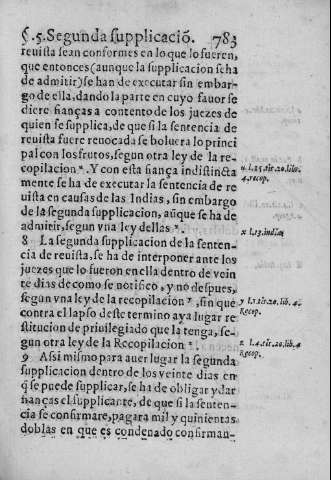 §. 5. Segunda supplicaciõ. 783
reuista sean conformes en lo que lo fueren,
que entonces (aunque la supplicacion se ha
de admitir) se han de executar sin embar-
go de ella, dando la parte en cuyo fauor se
diere fianças a contento de los juezes de
quien se supplica, de que si la sentencia de
reuista fuere reuocada se boluera lo princi
pal con los frutos, segun otra ley de la re-
copilacion u. Y con esta fiança indistincta
mente se ha de executar la sentencia de re
uista en causas de las Indias, sin embargo
de la segunda supplicacion, aũque se ha de
admitir, segun vna ley dellas x.
8 La segunda supplicacion de la senten-
cia de reuista, se ha de interponer ante los
juezes que lo fueron en ella dentro de vein
te dias de como se notifico, y no despues,
segun vna ley de la recopilacion y, sin que
contra el lapso deste termino aya lugar re
stitucion de priuilegiado que la tenga, se-
gun otra ley de la Recopilacion z.
9 Assi mismo para auer lugar la segunda
supplicacion dentro de los veinte dias en
q̃ se puede supplicar, se ha de obligar y dar
fianças el supplicante, de que si la senten-
cia se confirmare, pagara mil y quinientas
doblas en que es condenado confirman-
u l. 15. tit. 20. lib.
4. recop.
x l. 13. indias
y l. 1. tit. 20. lib. 4.
Recop.
z l. 4. tit. 20. lib. 4
Recop.